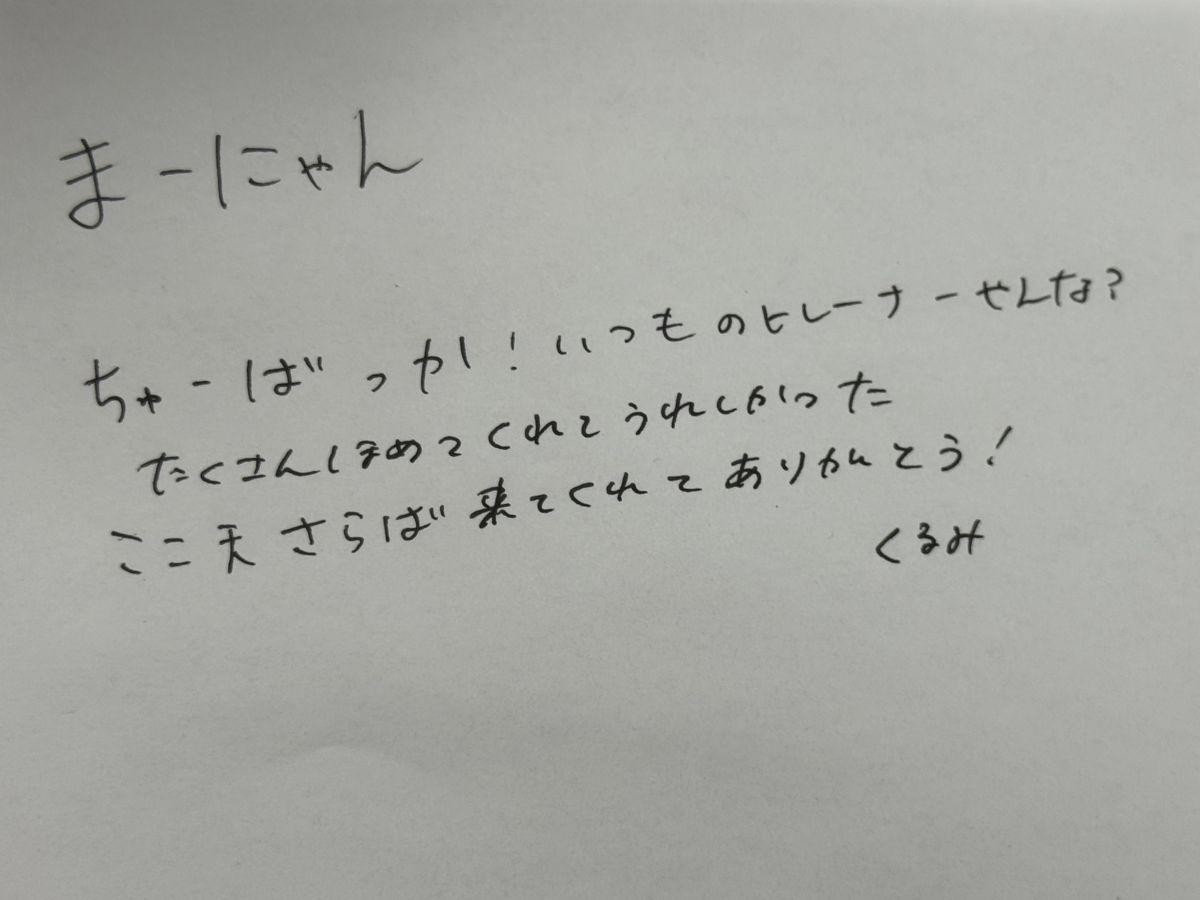 まーにゃん
ちゃーばっか！いつものトレーナーせんな？
たくさんほめてくれてうれしかった
ここ天さらば来てくれてありがとう！
くるみ